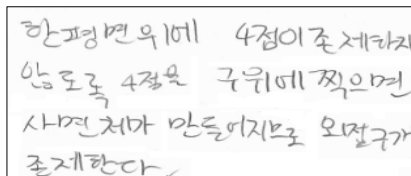 한평면위에 4점이 존재하지
않도록 4점을 구위에 찍으면
사면체가 만들어지므로 외접구가
존재한다.